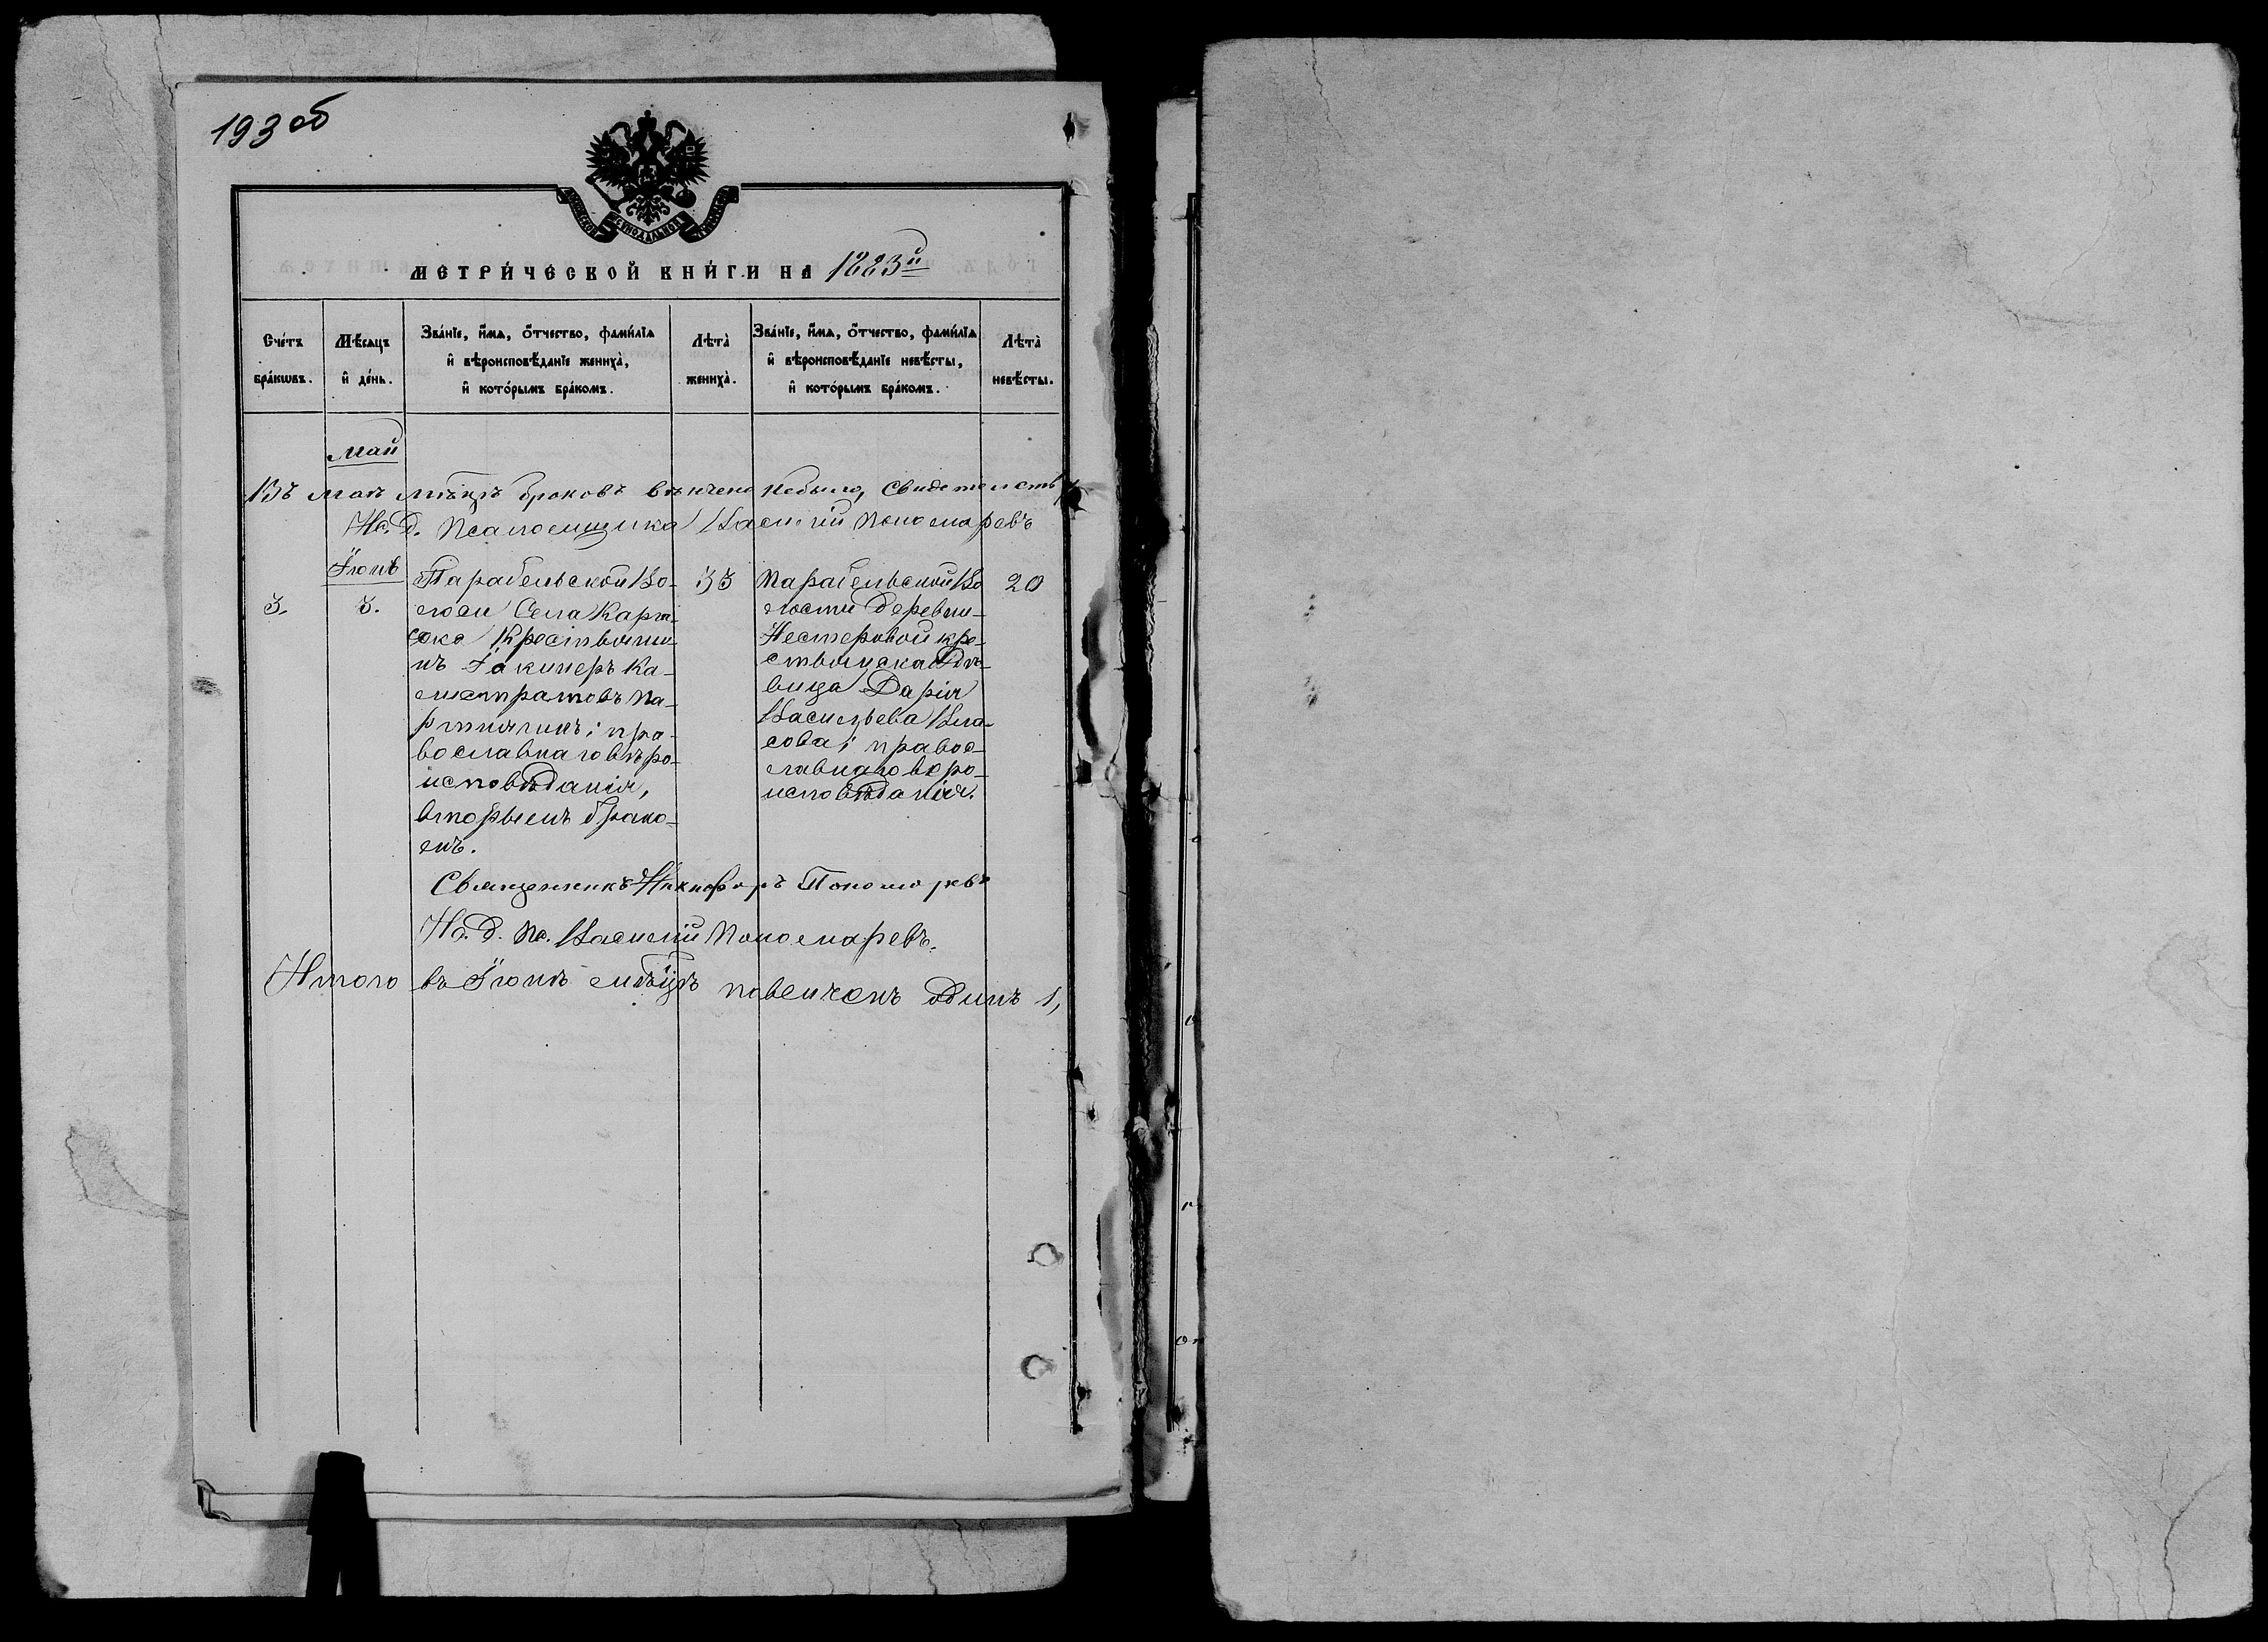 193 об
СѴНОДАЛЬНОЙ
МЕТРИ́ЧЕСКОЙ КНИ́ГИ НА 1883й
Сче́тъ бра́кѡвъ.
Мѣ́сяцъ и҆ де́нь.
Зва́нїе, и҆́мѧ, ѻ҆́тчество, фами́лїѧ и҆ вѣроисповѣ́данїе жениха̀, и҆ кото́рымъ бра́комъ.
Лѣта̀ жениха̀.
Зва́нїе, и҆́мѧ, ѻ҆́тчество, фами́лїѧ и҆ вѣроисповѣ́данїе невѣ́сты, и҆ кото́рымъ бра́комъ.
Лѣта̀ невѣ́сты.
Май
Въ маѣ мѣсцѣ браковъ вѣнчено небыло, свидетелств
И. д. Псаломщика Василій Пономаревъ
Іюнь
3.
3.
Парабельской Во-
лоси Села Карга-
сока Крестьяни-
нъ
Ка-
листратовъ Па-
; пра-
вославнаго вѣро-
исповѣданія,
вторымъ брако-
мъ.
35
Парабельской Во
лости деревни
Нестеровой кре-
стьянска дѣ-
вица Дарія
Васильева Вла-
сова; правос-
лавнаго веро-
исповѣданія.
20
Священникъ Никифоръ Пономаревъ
И. д. Пс. Василій Пономаревъ.
Итого въ Іюнѣ мѣсцѣ повенченъ одинъ 1,